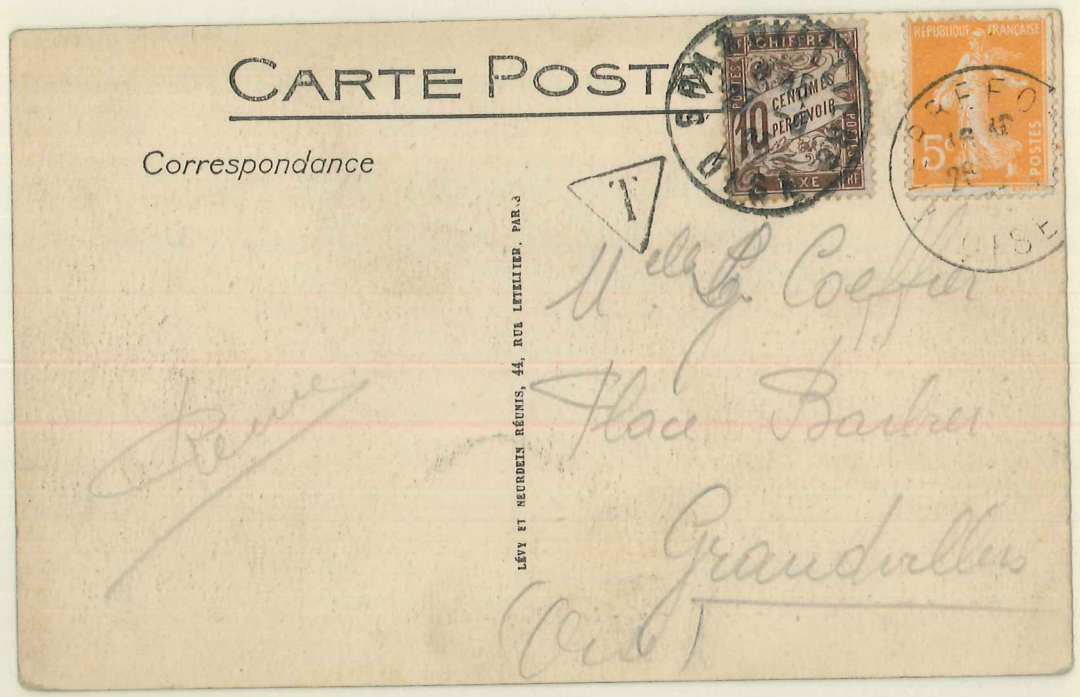 CARTE POST
Correspondance
T
CHIFFRE
POSTES
10
CENTIMES
A
PERCEVOIR
POSTES
TAXE
RF
GRANDVILLIERS
OISE
REPUBLIQUE FRANÇAISE
5c
POSTES
28
OISE
LÉVY ET NEURDEIN RÉUNIS, 44, RUE LETELLIER, PARIS
Melle G. Coeffier
Place Barbier
Grandvilliers
(Oise)